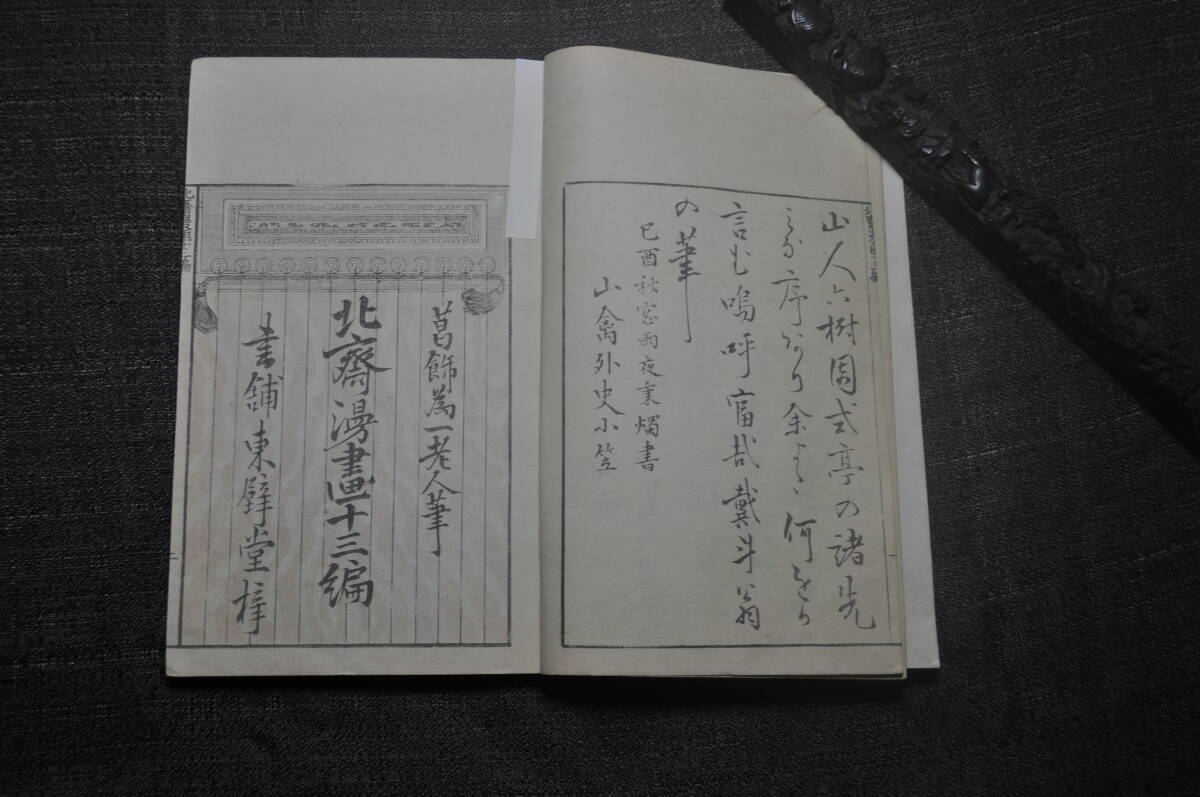 山人六樹園式亭の諸先
序あり余また何をか
言む嗚呼富哉戴斗翁
の筆
己酉秋窓雨夜秉燭書
山禽外史小笠
葛飾為一老人筆
北齋漫畫十三編
書舗東壁堂梓